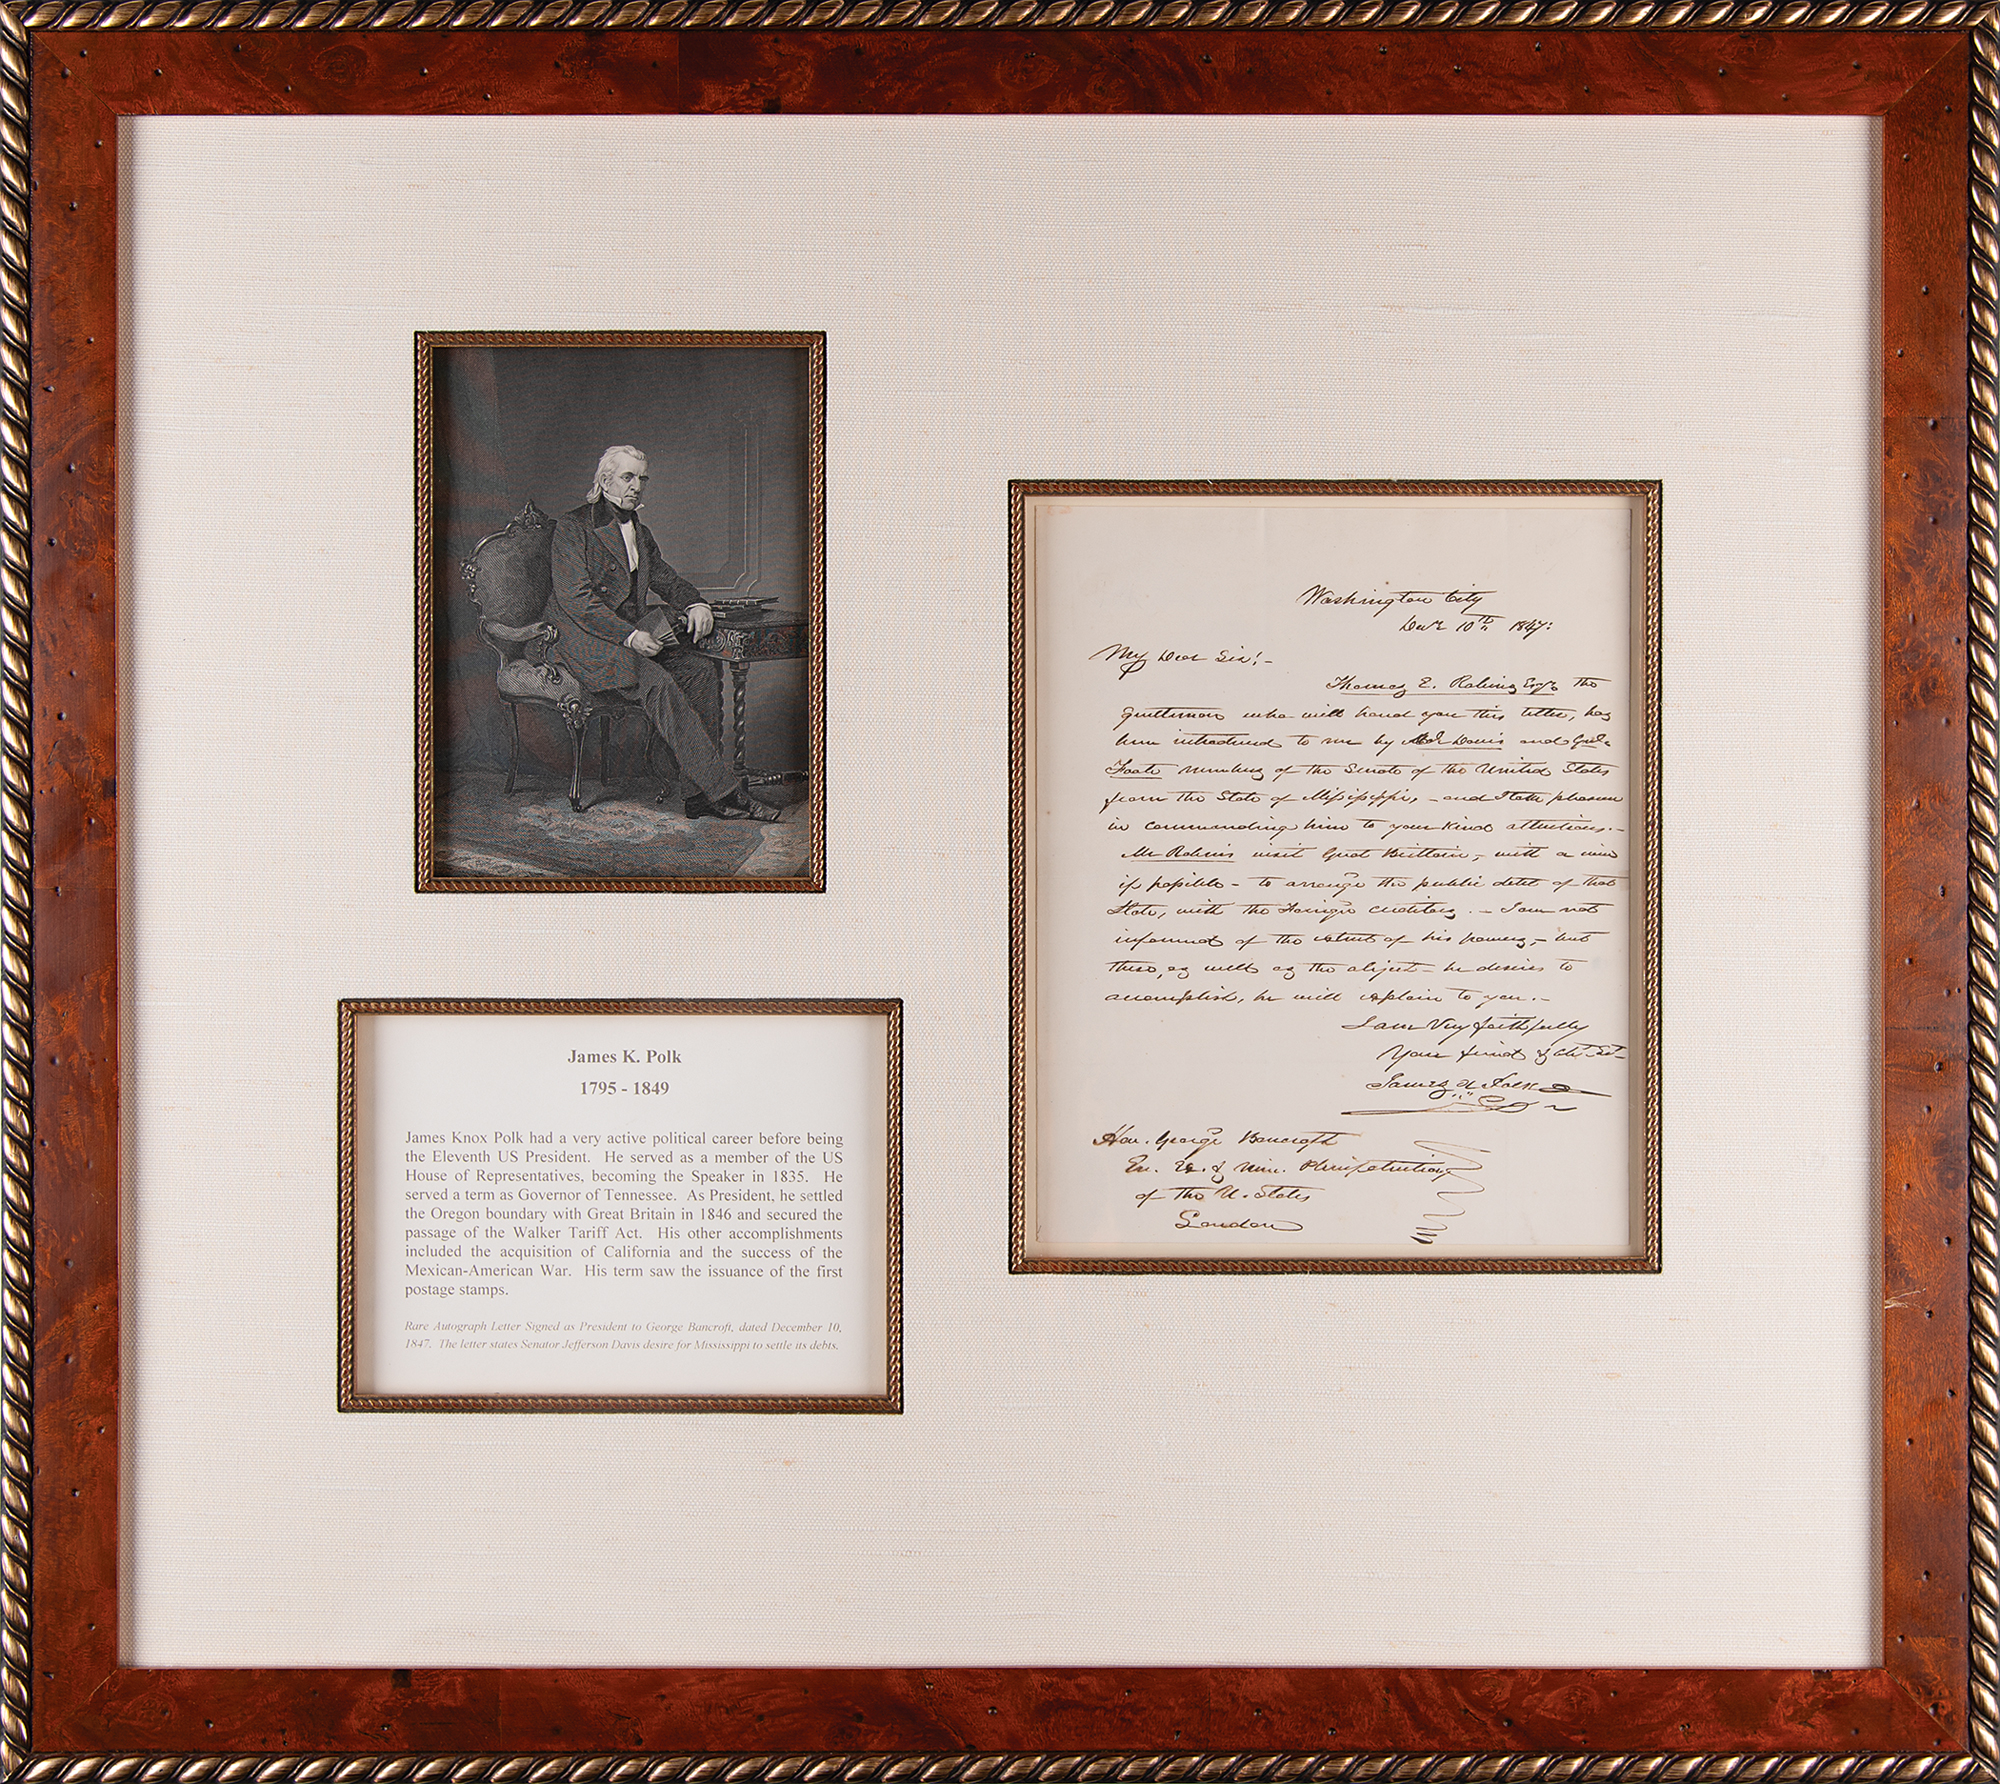 James K. Polk
1795 - 1849
James Knox Polk had a very active political career before being
the Eleventh US President. He served as a member of the US
House of Representatives, becoming the Speaker in 1835. He
served a term as Governor of Tennessee. As President, he settled
the Oregon boundary with Great Britain in 1846 and secured the
passage of the Walker Tariff Act. His other accomplishments
included the acquisition of California and the success of the
Mexican-American War. His term saw the issuance of the first
postage stamps.
Rare Autograph Letter Signed as President to George Bancroft, dated December 10,
1847. The letter states Senator Jefferson Davis desire for Mississippi to settle its debts.
Washington City
Decr 10th 1847:
My Dear Sir! -
Thomas E. Robins Esqr the
gentleman who will hand you this letter, has
been introduced to me by Davis and Genl.
Foote members of the Senate of the United States
from the State of Mississippi, - and I take pleasure
in commending him to your kind attentions. -
Mr Robins visits Great Brittain, - with a view
if possible - to arrange the public debt of that
State, with the Foreign creditors. - I am not
informed of the extent of his powers, - but
these, as well as the object - he desires to
accomplish, he will explain to you. -
I am Very faithfully
Your friend & Obt. St-
James K. Polk
Hon. George Bancroft
En. Ex. & Min. Plenipotentiary
of the U. States
London